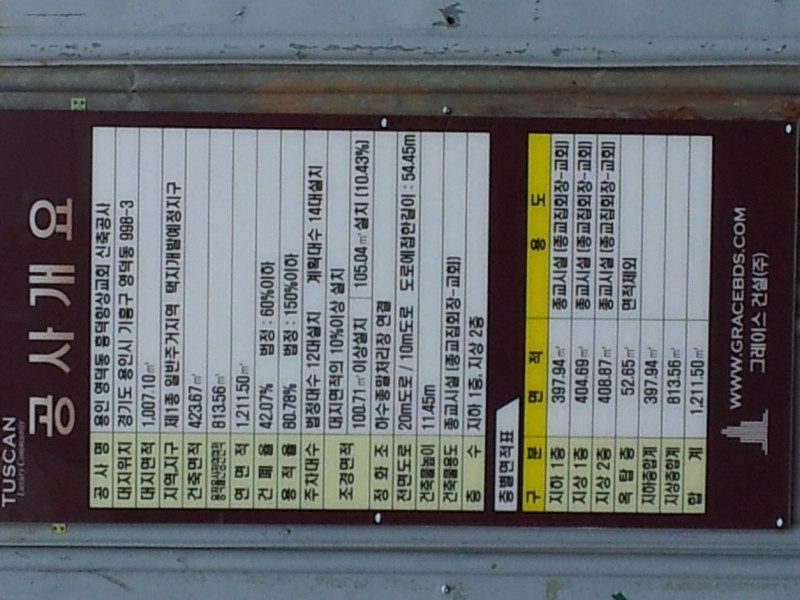 TUSCAN
Luxury Community
공사개요
공 사 명 용인 영덕동 흥덕향상교회 신축공사
대지위치 경기도 용인시 기흥구 영덕동 998-3
대지면적 1,007.10㎡
지역,지구 제1종 일반주거지역 택지개발예정지구
건축면적 423.67㎡
용적율산정연면적 813.56㎡
연 면 적 1,211.50㎡
건 폐 율 42.07% 법정 : 60%이하
용 적 율 80.78% 법정 : 150%이하
주차대수 법정대수 12대설치 계획대수 14대설치
조경면적 대지면적의 10%이상 설치
100.71㎡ 이상설치 105.04㎡ 설치 (10.43%)
정 화 조 하수종말처리장 연결
전면도로 20m도로 / 10m도로 도로에접한길이 : 54.45m
건축물높이 11.45m
건축물용도 종교시설 (종교집회장-교회)
층 수 지하 1층, 지상 2층
층별면적표
구 분 면 적 용 도
지하 1층 397.94㎡ 종교시설 (종교집회장-교회)
지상 1층 404.69㎡ 종교시설 (종교집회장-교회)
지상 2층 408.87㎡ 종교시설 (종교집회장-교회)
옥 탑 층 52.65㎡ 면적제외
지하층합계 397.94㎡
지상층합계 813.56㎡
합 계 1,211.50㎡
WWW.GRACEBDS.COM
그레이스 건설(주)